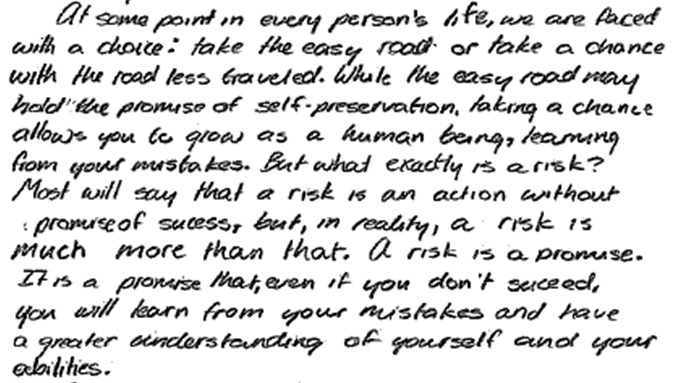 At some point in every person's life, we are faced
with a choice: take the easy road or take a chance
with the road less traveled. While the easy road may
hold the promise of self-preservation, taking a chance
allows you to grow as a human being, learning
from your mistakes. But what exactly is a risk?
Most will say that a risk is an action without
promise of sucess, but, in reality, a risk is
much more than that. A risk is a promise.
It is a promise that, even if you don't suceed,
you will learn from your mistakes and have
a greater understanding of yourself and your
abilities.